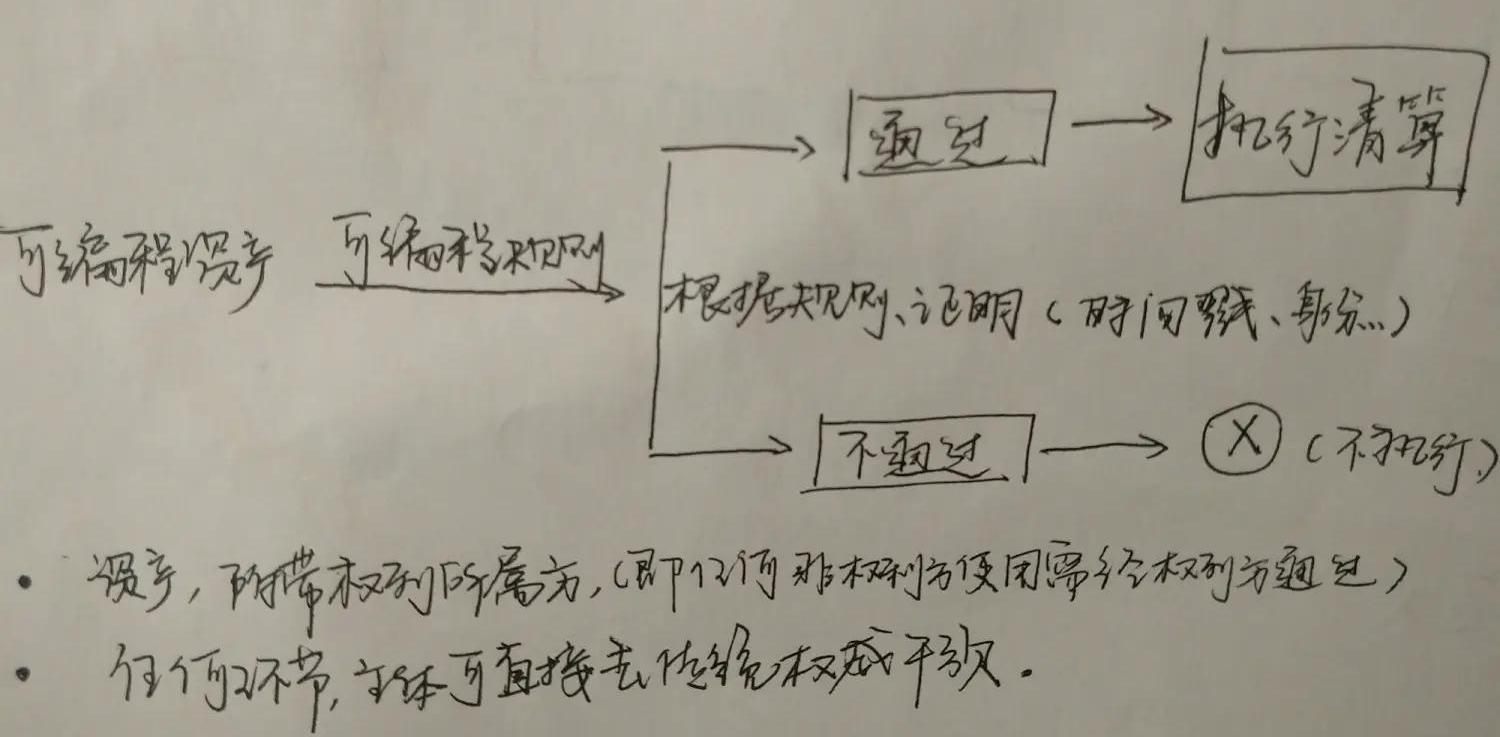 通过
执行清算
可编程资产
可编程规则
根据规则、证明(时间戳、身份...)
不通过
X
(不执行)
· 资产,附带权利所属方,(即任何非权利方使用需经权利方通过)
· 任何环节,主体可直接去传统权威干预.